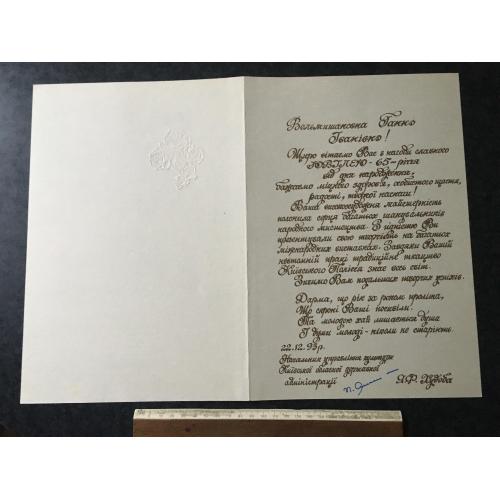 Вельмишановна Ганно
Іванівно!
Щиро вітаємо Вас з нагоди славного
ЮВІЛЕЮ - 65-річчя
від дня народження,
бажаємо міцного здоров'я, особистого щастя,
радості, творчої наснаги!
Ваша високохудожня майстерність
полонила серця багатьох шанувальників
народного мистецтва. З гідністю Ви
презентували свою творчість на багатьох
міжнародних виставках. Завдяки Вашій
невтомній праці традиційне ткацтво
Київського Полісся знає весь світ.
Зичимо Вам подальших творчих успіхів.
Дарма, що рік за роком проліта,
Що скроні Ваші посивіли.
Та молодою хай лишається душа
І душі молоді - ніколи не старіють.
22.12.93р.
Начальник управління культури
Київської обласної державної
адміністрації